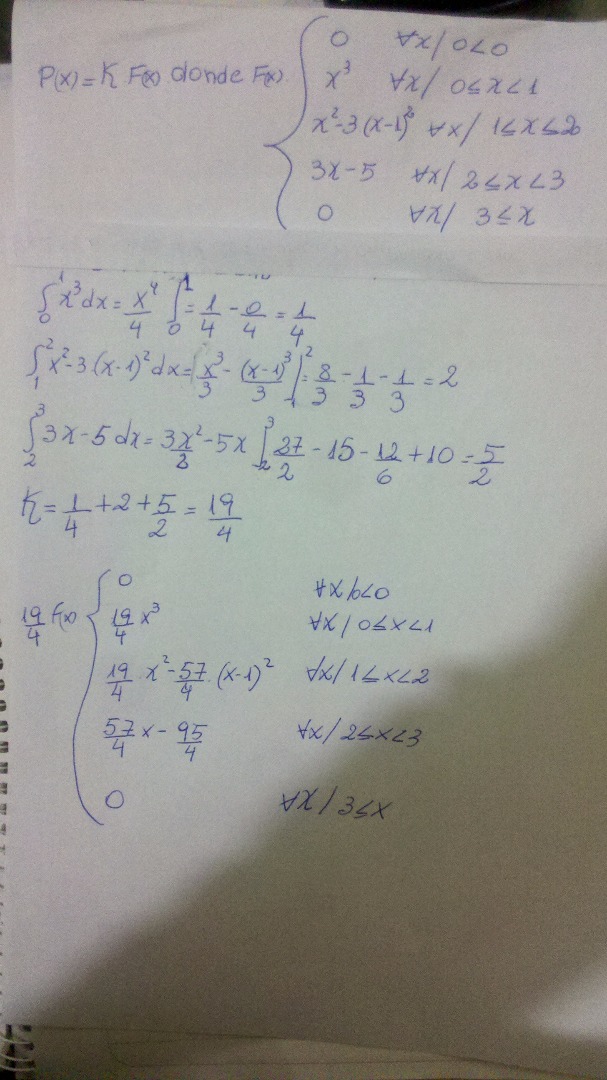 P(x)=K F(x) donde F(x)
0 ∀x/ 0<0
x³ ∀x/ 0≤x<1
x²-3(x-1)² ∀x/ 1≤x≤2
3x-5 ∀x/ 2≤x<3
0 ∀x/ 3≤x
∫₀¹ x³dx = x⁴/4 ∫₀¹ = 1/4 - 0/4 = 1/4
∫₁² x²-3(x-1)² dx = x³/3 - (x-1)³/3 |₁² = 8/3 - 1/3 - 1/3 = 2
∫₂³ 3x-5 dx = 3x²/2 - 5x ∫₂³ 27/2 - 15 - 12/6 + 10 = 5/2
K = 1/4 + 2 + 5/2 = 19/4
19/4 F(x)
0 ∀x/0<0
19/4 x³ ∀x/ 0≤x<1
19/4 x² - 57/4 (x-1)² ∀x/ 1≤x<2
57/4 x - 95/4 ∀x/ 2≤x<3
0 ∀x/ 3≤x